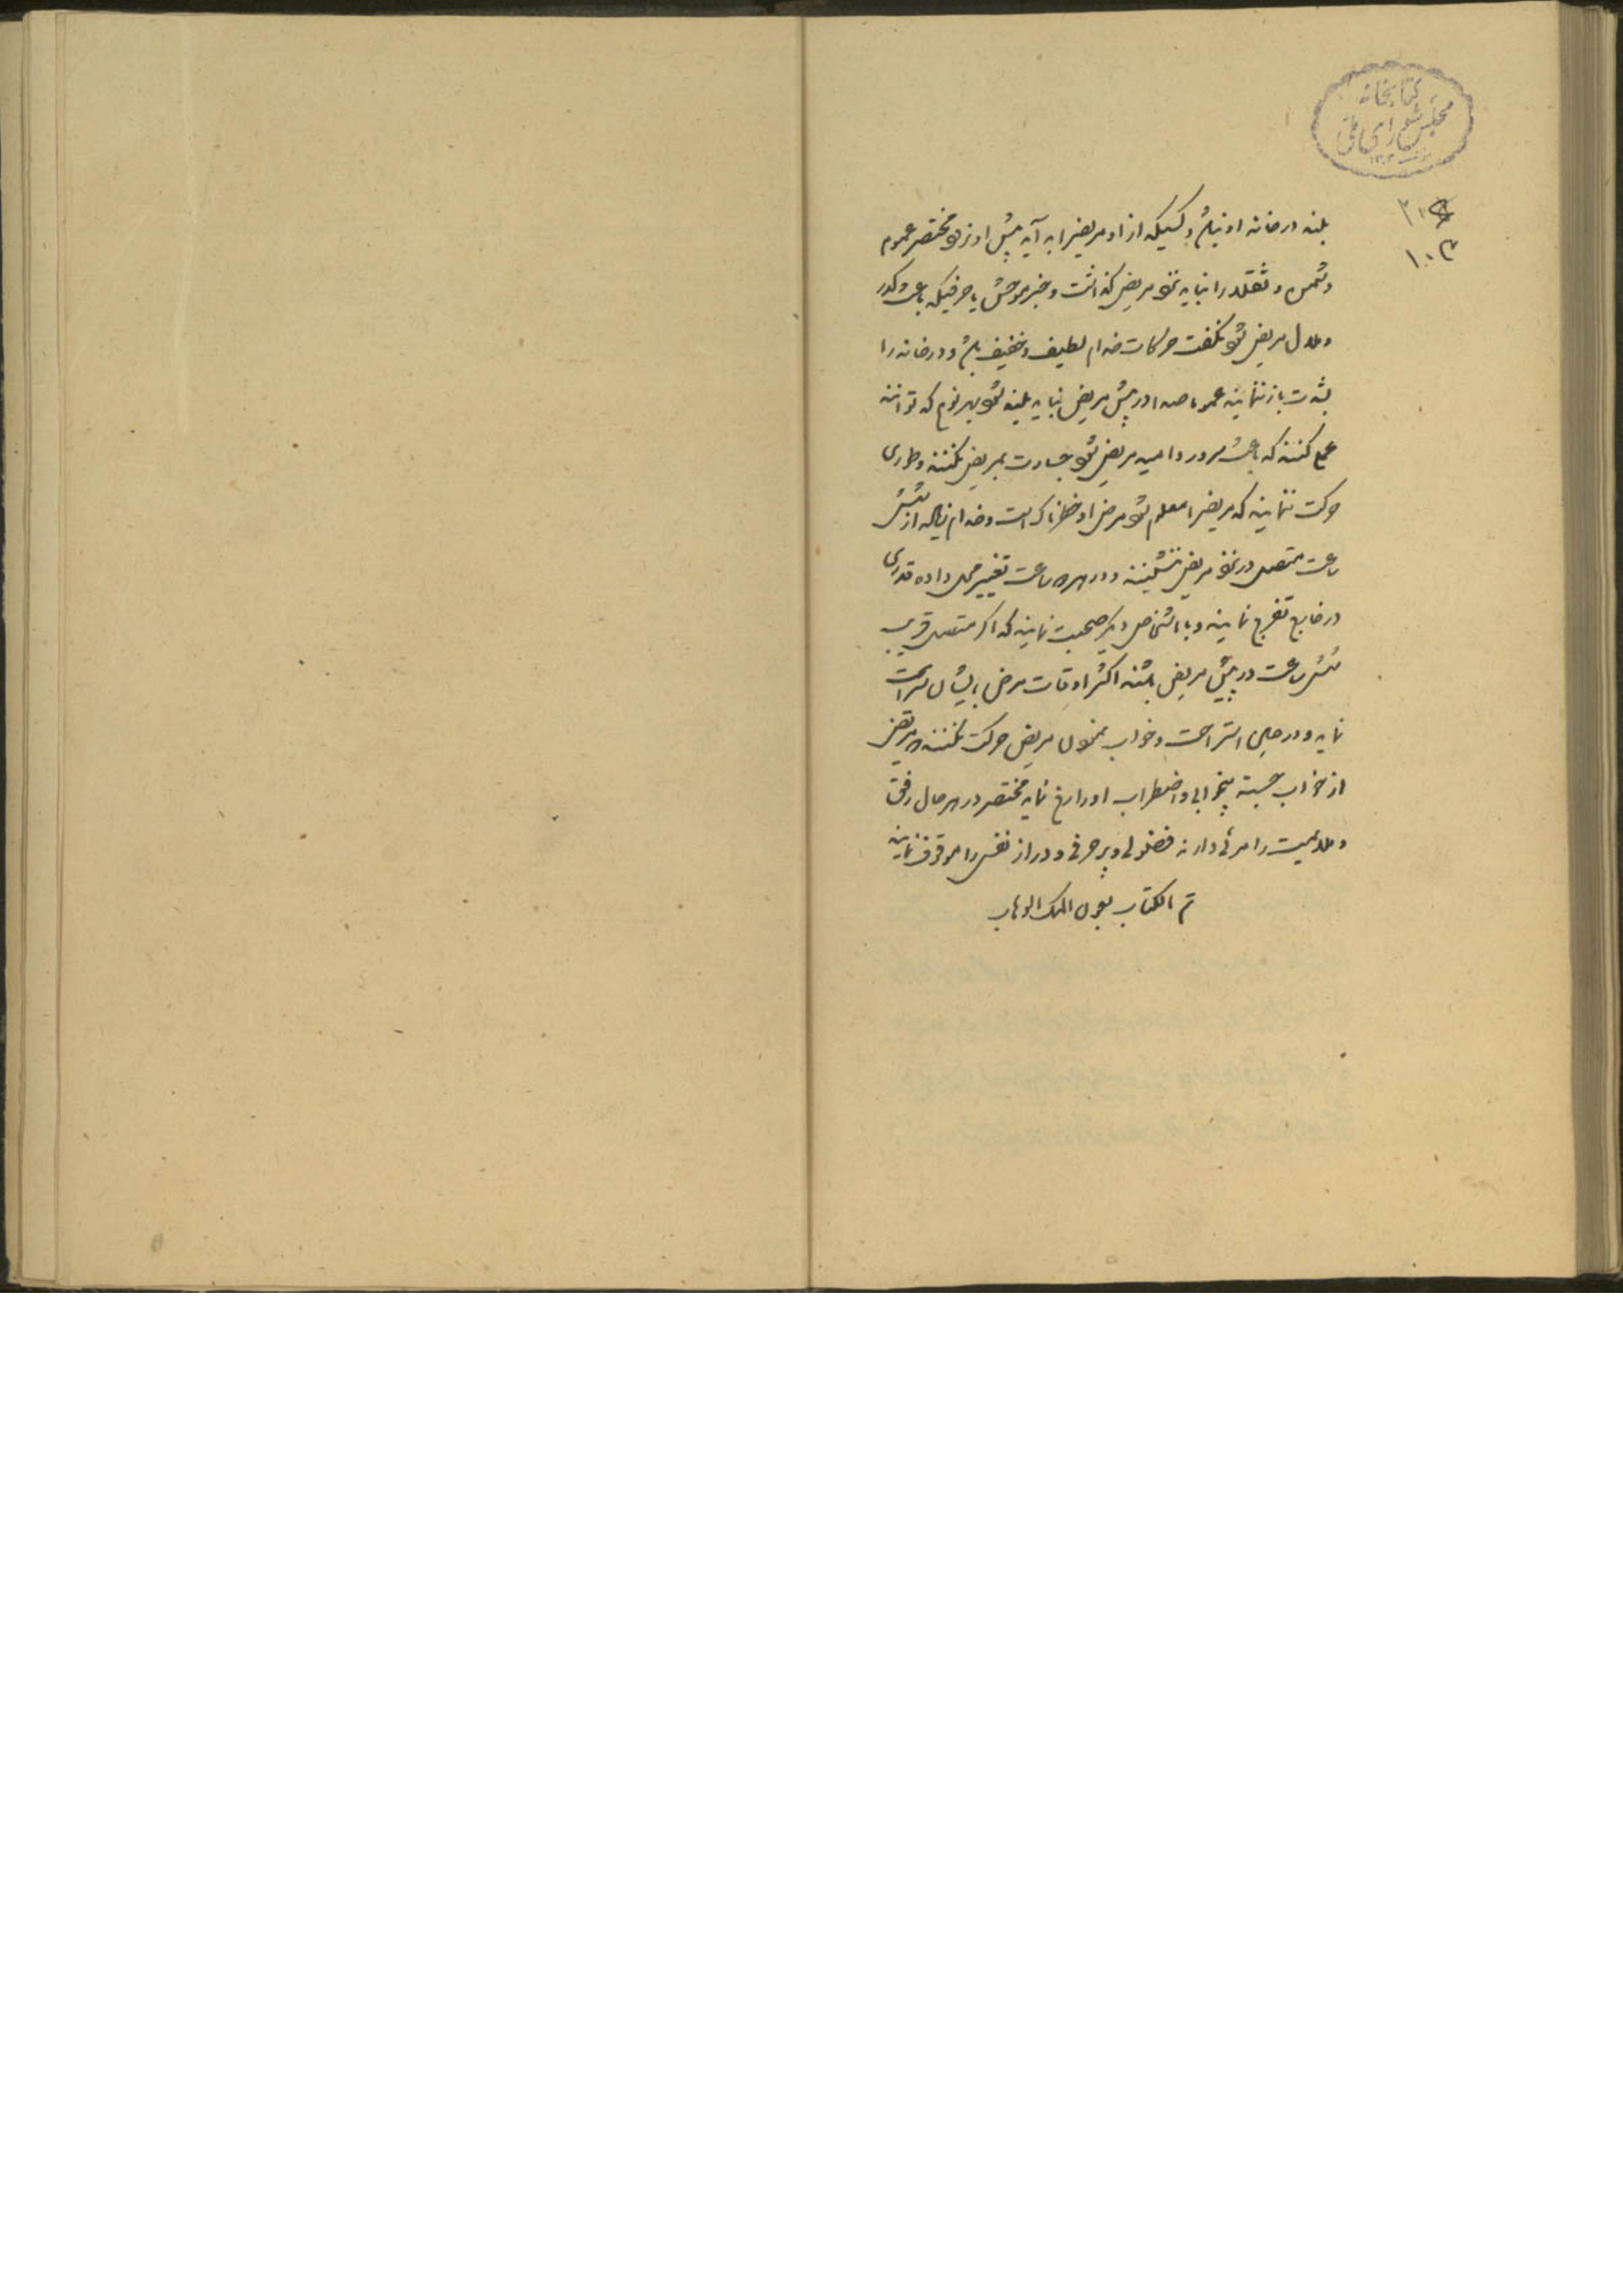 کتابخانه
مجلس شورای ملی
۱۳۰۲
۱۰۳
بلند در خانه او نباشد و کسیکه از او مریض را بد آید پیش او نرود مختصر عموم
دشمن و ثقلا را نباید نزد مریض گذاشت و خبر موحش یا حرفیکه باعث کدر
و ملال مریض شود نگفت حرکات خدام لطیف و خفیف باشد و در خانه را
بشدت باز ننمایند عموما صدا در پیش مریض نباید بلند شود بهر نوع که توانند
عمل کنند که باعث سرور و امید مریض شود جسارت بمریض نکنند و طوری
حرکت ننمایند که مریض را معلوم شود مرض او خطرناک است و خدام زیاد از شش
ساعت متصل در نزد مریض ننشینند و در هر ساعت تغییر محل داده قدری
در خارج تفرج نمایند و با اشخاص دیگر صحبت نمایند که اگر متصل قریب
شش ساعت در پیش مریض باشند اکثر اوقات مرض بایشان سرایت
نماید و در حین استراحت و خواب نمودن مریض حرکت نکنند که مریض
از خواب جسته بیخوابی و اضطراب او را رنج نماید مختصر در هر حال رفق
و ملایمت را مرعی دارند فضولی و پر حرفی و دراز نفسی را موقوف نمایند
تم الکتاب بعون الملک الوهاب